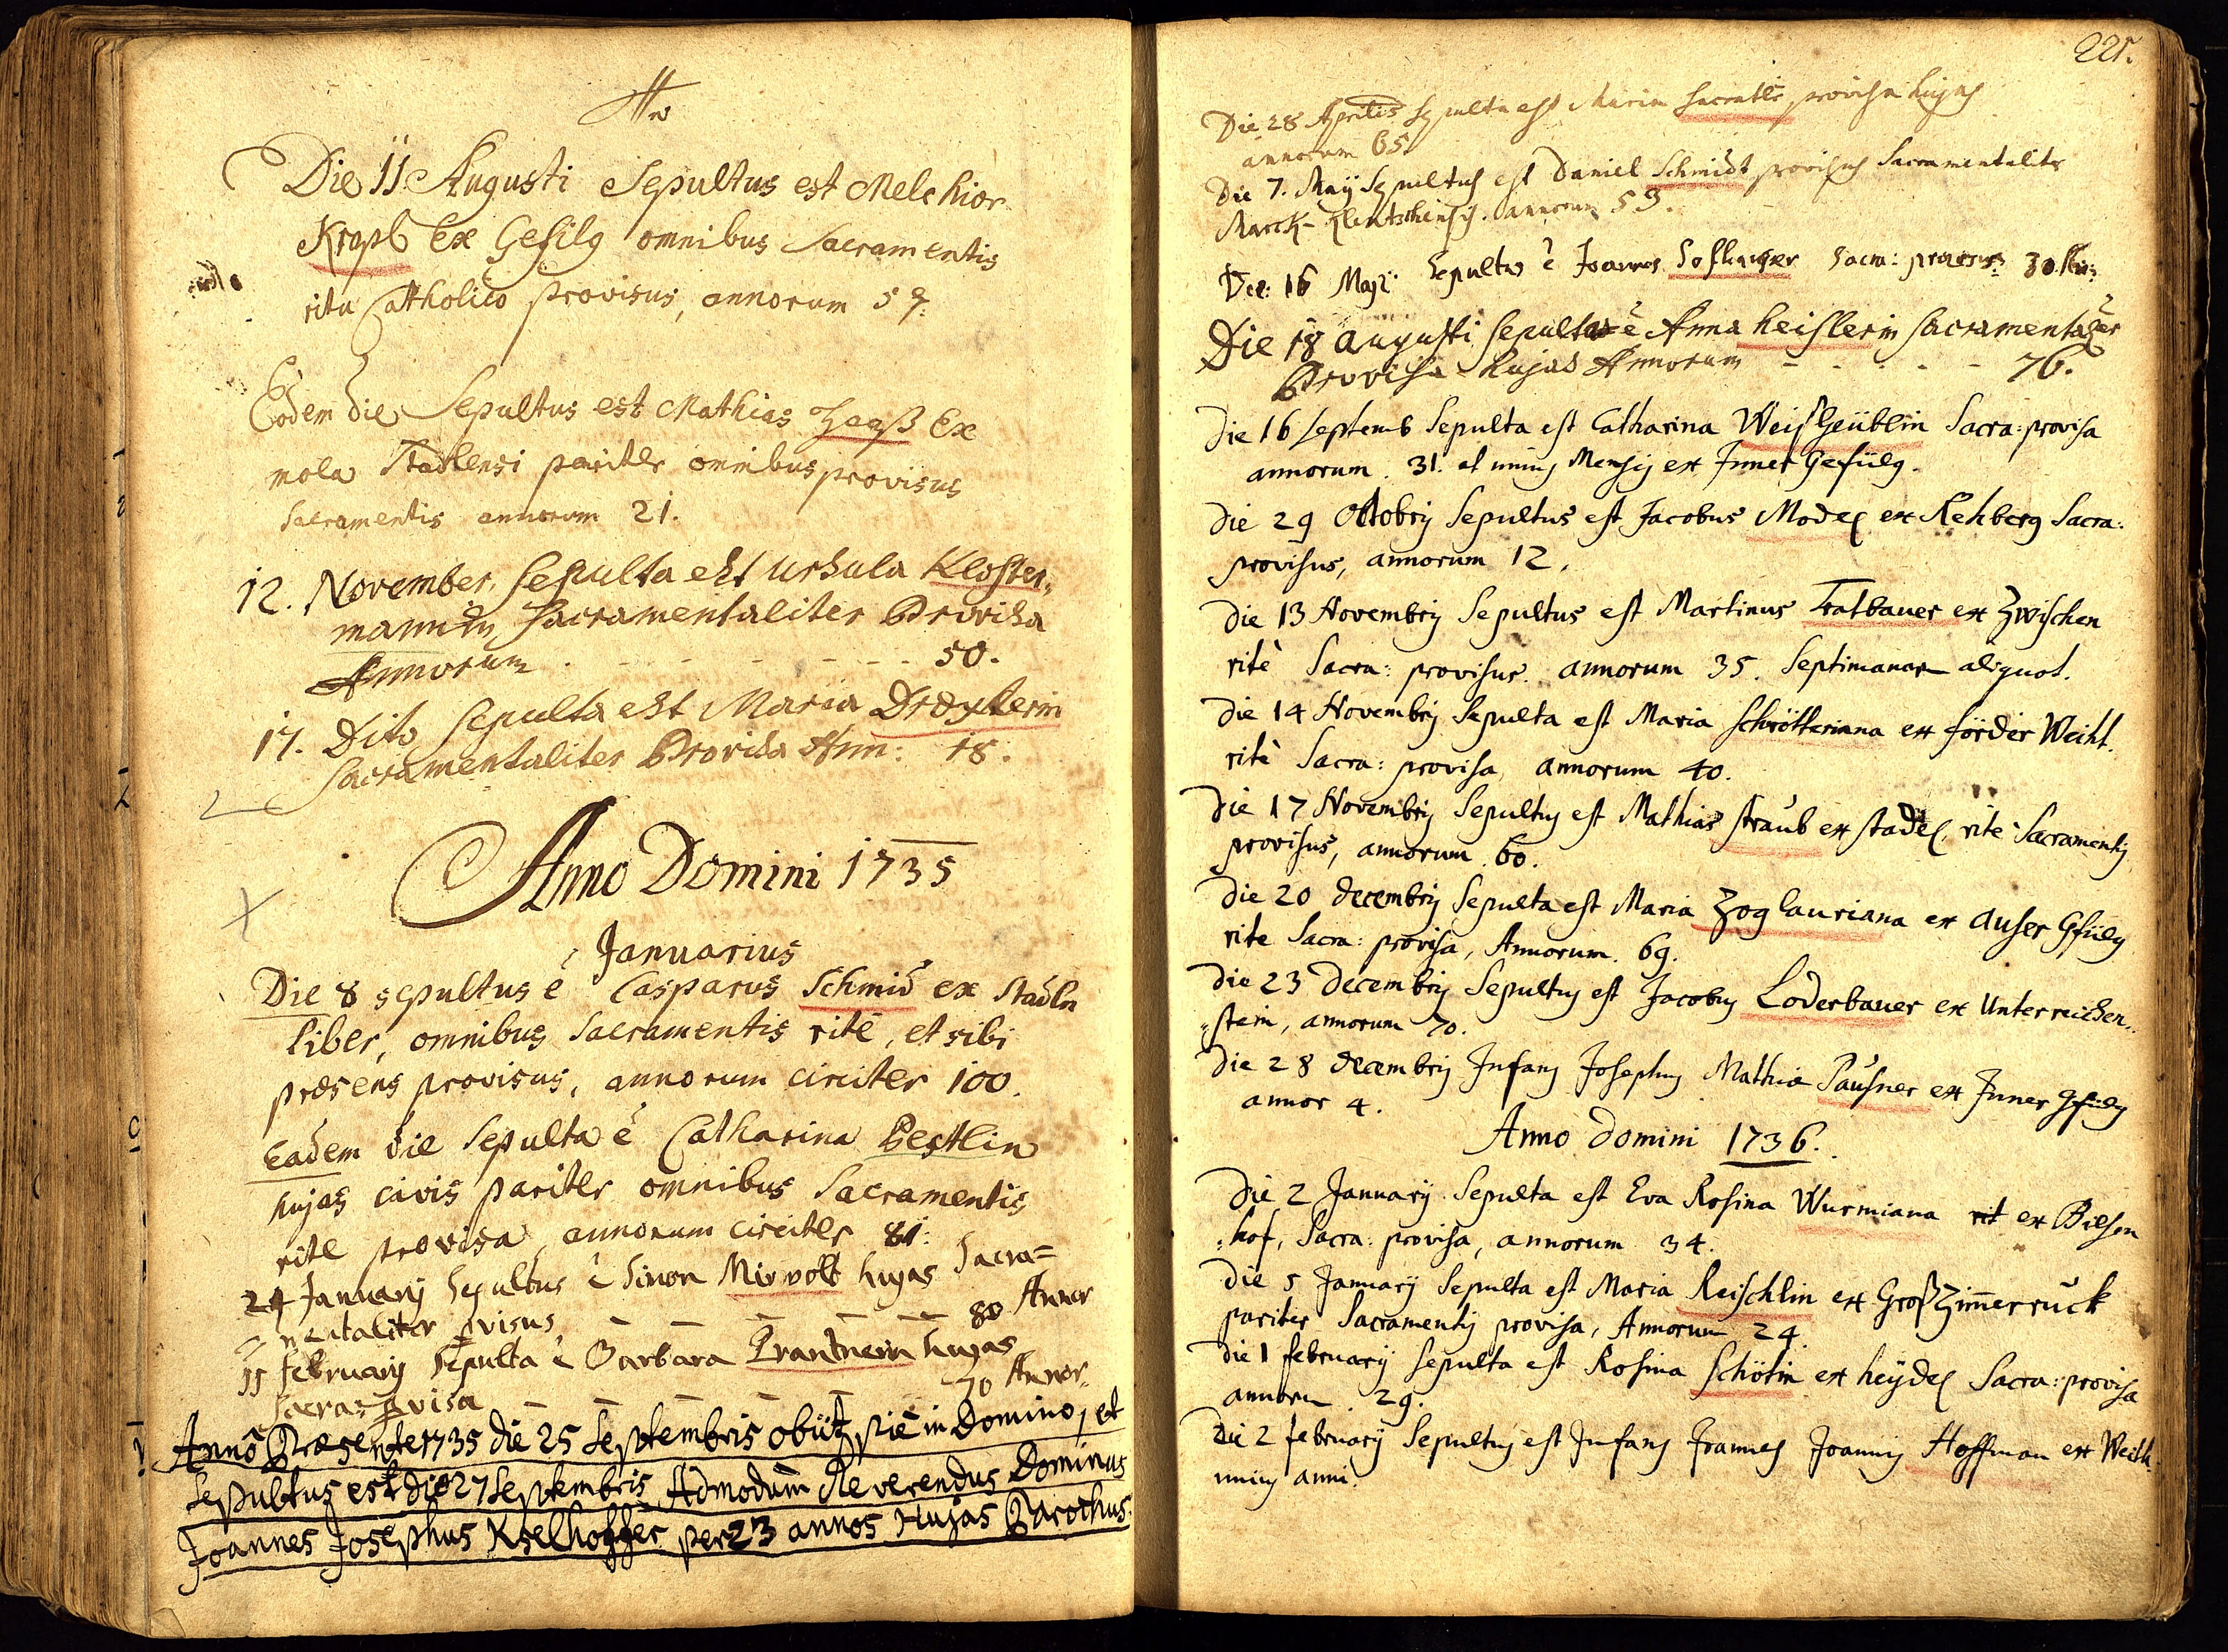 Die 11 Augusti Sepultus est Melchior
Kropb Ex Gefilg omnibus Sacramentis
ritu Catholico provisus, annorum 59.
Eodem die Sepultus est Mathias Haaß Ex
mola Stadlensi pariter omnibus provisus
Sacramentis annorum 21.
12. November. Sepulta est Ursula Kloster„
mannin Sacramentaliter Provisa
Annorum . - - - - - - - 50.
17. Dito Sepulta est Maria Drexlerin
Sacramentaliter Provisa Ann: 18.
Anno Domini 1735
Januarius
Die 8 sepultus é Casparus Schmid ex Stadln
liber, omnibus Sacramentis rité, et sibi
præsens provisus, annorum circiter 100.
Eadem die Sepulta é Catharina Pestlin
hujas civis pariter omnibus Sacramentis
rite provisa annorum circiter 81.
24 January Sepultus è Simon Mirwolt hujas Sacra=
mentaliter pvisus 80 Annor
11 February Sepulta è Barbara Prantnerin hujas
Sacra= pvisa 70 Annor.
Annô Præsente 1735 die 25 Septembris obiit piè in Domino, et
Sepultus est die 27 Septembris Admodum Reverendus Dominus
Joannes Josephus Kselhoffer per 23 annos Hujas Parochus.
221.
Die 28 Aprilis Sepulta est Maria provisa hujas
annorum 65.
Die 7. Maÿ Sepultus est Daniel Schmidt provisus Sacramentaliter
Marck- annorum 59.
Die: 16 Maji: Sepultus è Joannes Sacra: provisus: 30
Die 18 augusti Sepulta è Anna heislerin Sacramentaliter
Provisa hujas Annorum - - - - - 76.
Die 16 Septemb Sepulta est Catharina Weißheüblin Sacra: provisa
annorum. 31. et unius Mensis ex Inner Gefüelg.
Die 29 Octobris Sepultus est Jacobus Model ex Rehberg Sacra:
provisus, annorum 12.
Die 13 Novembris Sepultus est Martinus Tratbauer ex Zwischen
ritè Sacra: provisus. annorum 35. Septimanar aliquot.
Die 14 Novembris Sepulta est Maria Schrötteriana ex förder Weiht.
ritè Sacra: provisa, annorum 40.
Die 17 Novembris Sepultus est Mathias Straub ex Stadel, ritè Sacramentis
provisus, annorum 60.
Die 20 decembris Sepulta est Maria Zoglauriana ex Auser Gfüelg
rite Sacra: provisa, Annorum. 69.
Die 23 Decembris Sepultus est Jacobus Loderbauer ex Unterreichen„
„stein, annorum 70.
Die 28 decembris Infans Josephus Mathiæ Pausner ex Inner Gfüelg
annor 4.
Anno Domini 1736.
Die 2 January Sepulta est Eva Rosina Wurmiana rit ex Bielsen
„hof, Sacra: provisa, annorum 34.
Die 5 January Sepulta est Maria Reischlin ex Großzimmerruck
pariter Sacramentis provisa, Annorum 24.
Die 1 february Sepulta est Rosina Schötin ex heÿdel Sacra: provisa
annoru 29.
Die 2 february Sepultus est Infans Joannes Joannis Hoffman ex Weith.
unius anni.